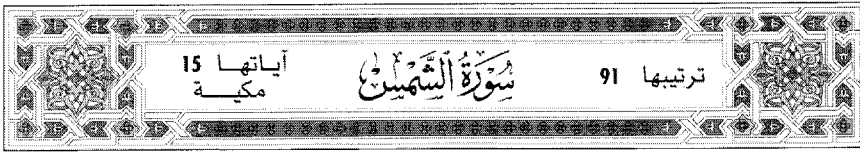 ترتيبها 91
سُورَةُ الشَّمْسِ
آياتهــا 15
مكيــة